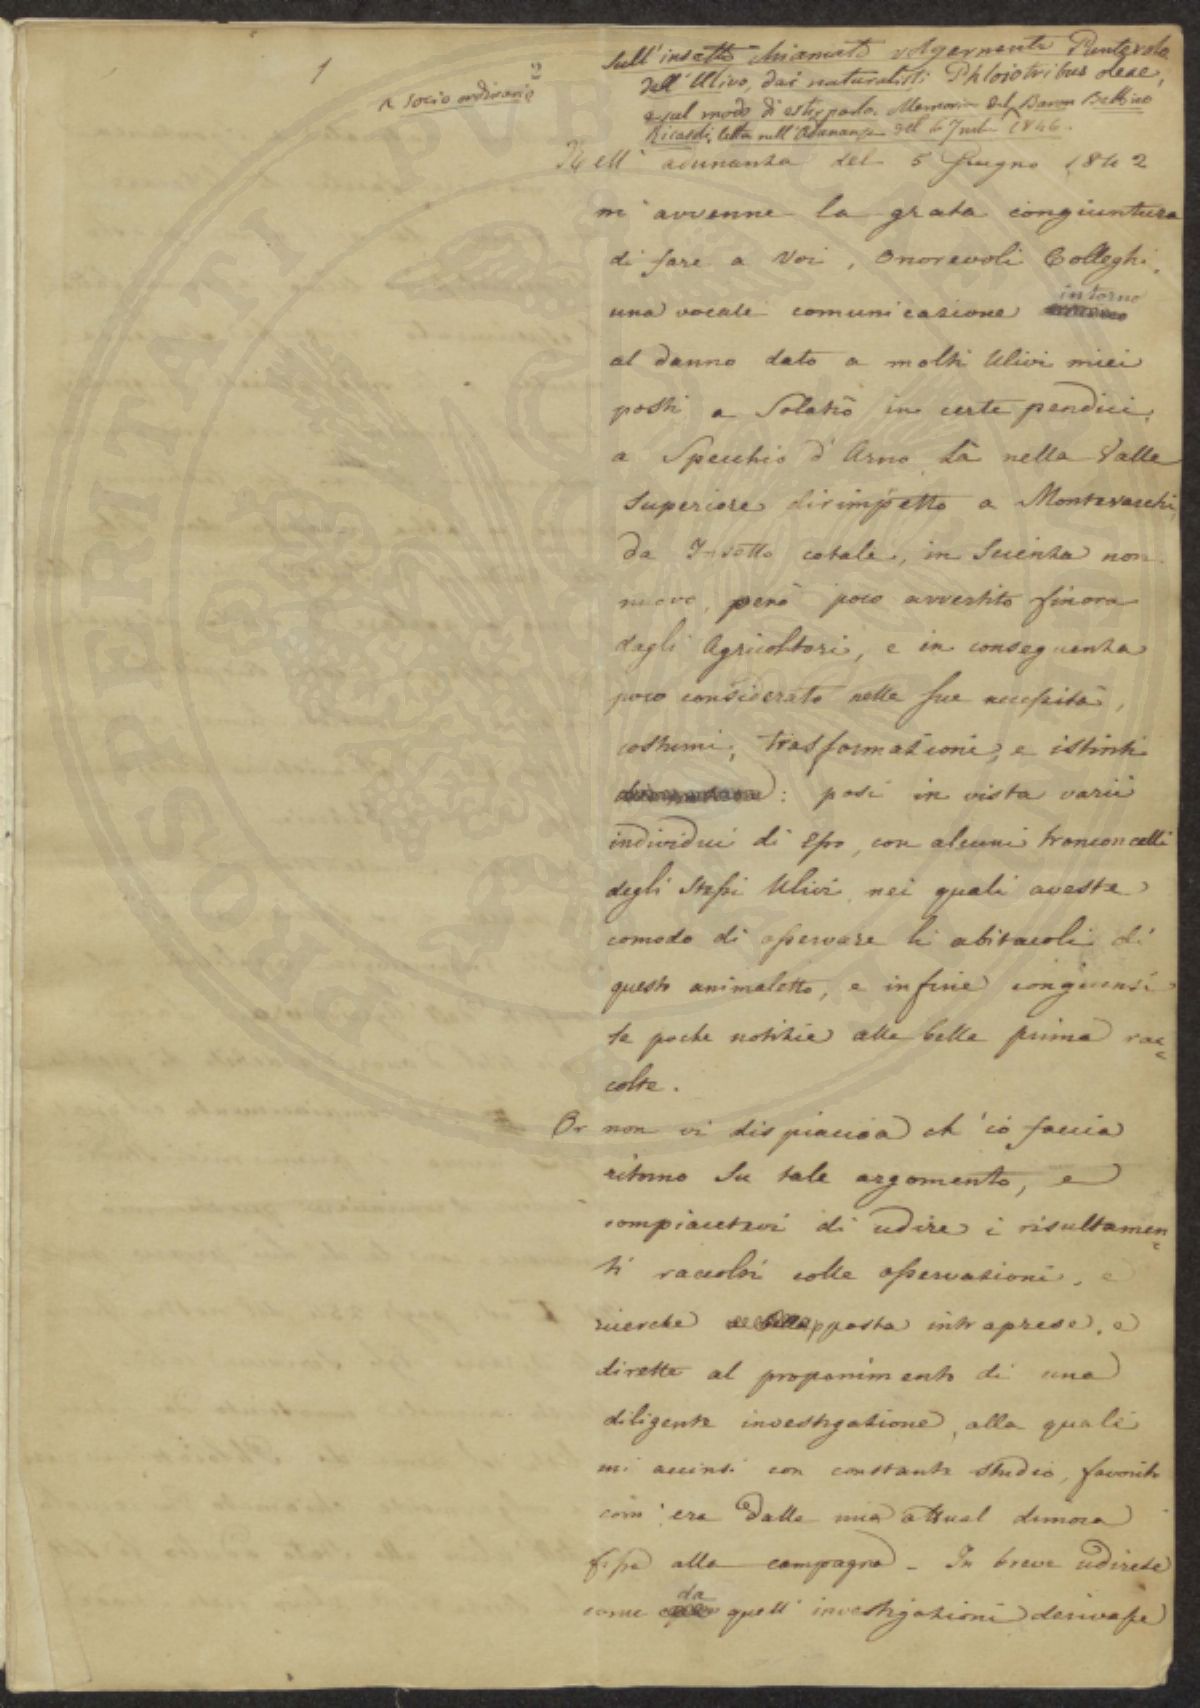 1
Socio ordinario
Sull'insetto chiamato volgarmente Punterolo
dell'Ulivo, dai naturalisti Phloiotribus oleae,
e sul modo di estirparlo. Memoria del Baron Bettino
Ricasoli, letta nell'Adunanza del 1846.
Nell'adunanza del 5 Giugno 1842
m'avvenne la grata congiuntura
di fare a Voi, Onorevoli Colleghi,
una vocale comunicazione intorno
al danno dato a molti Ulivi miei
posti a Solatio in certe pendici,
a Specchio d'Arno là nella Valle
Superiore dirimpetto a Montevarchi
da Insetto cotale, in Scienza non
nuovo, però poco avvertito finora
dagli Agricoltori, e in conseguenza
poco considerato nelle sue necessità,
costumi, trasformazioni, e istinti
: posi in vista varii
individui di esso, con alcuni tronconcelli
degli stessi Ulivi, nei quali aveste
comodo di osservare li abitacoli di
questo animaletto, e infine congiunsi
le poche notizie alla bella prima rac=
colte.
Or non vi dispiaccia ch'io faccia
ritorno su tale argomento, e
compiacetevi di udire i risultamen=
ti raccolti colle osservazioni, e
ricerche apposta intraprese, e
dirette al proponimento di una
diligente investigazione, alla quale
mi accinsi con constante studio, favorito
com'era dalla mia attual dimora
fissa alla campagna - In breve udirete
come da quell'investigazioni derivasse